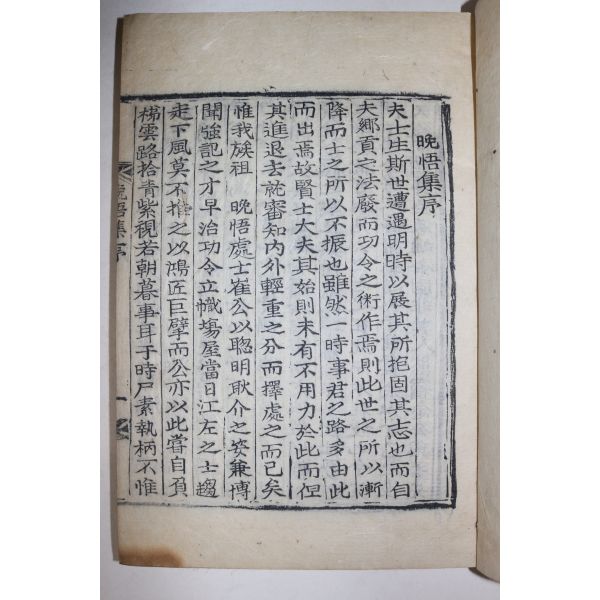 晩悟集序
夫士生斯世遭遇明時以展其所抱固其志也而自
夫鄕貢之法廢而功令之術作焉則此世之所以漸
降而士之所以不振也雖然一時事君之路多由此
而出焉故賢士大夫其始則未有不用力於此而但
其進退去就審知內外輕重之分而擇處之而已矣
惟我族祖　晩悟處士崔公以聦明耿介之姿兼博
聞強記之才早治功令立幟塲屋當日江左之士趨
走下風莫不推之以鴻匠巨擘而公亦以此嘗自負
梯雲路拾青紫視若朝暮事耳于時尸素執柄不惟
晩悟集序
一